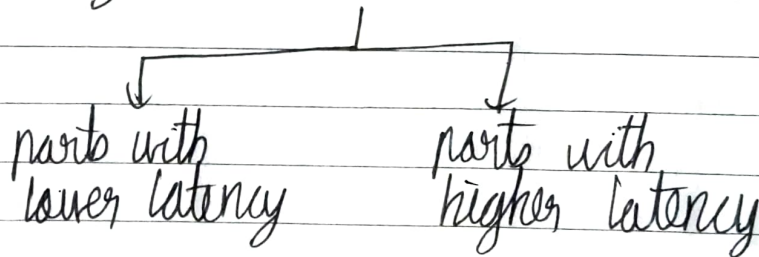 parts with
lower latency
parts with
higher latency